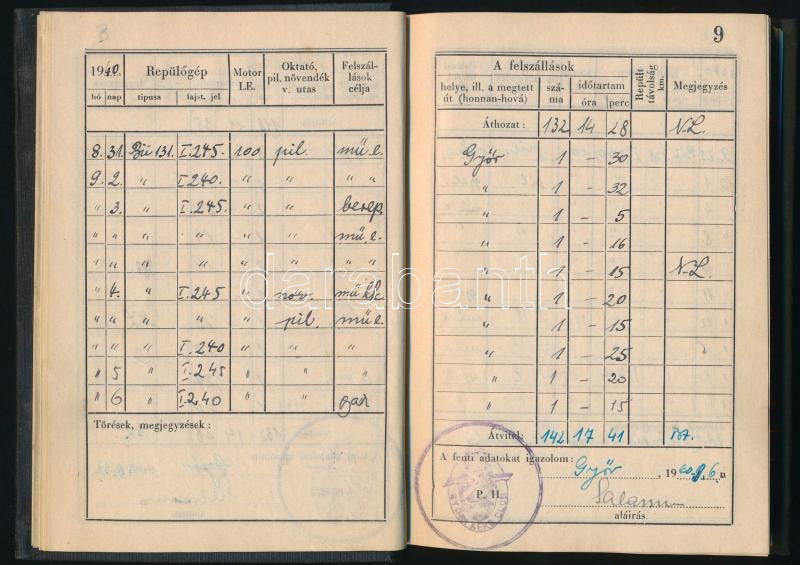 8
1940. Repülőgép Motor LE. Oktató, pil. növendék v. utas Felszállások célja
hó nap tipusa lajst. jel
8. 31. Bü 131. I.245. 100 pil. mű e.
9. 2. " I.240. " " " "
" 3. " I.245. " " berep.
" " " " " " mű e.
" " " " " " " "
" 4. " I.245 " növ.
" " " " " pil. mű e.
" " " I.240 " " "
" 5 " I.245 " " "
" 6 " I.240 " "
Törések, megjegyzések :
9
A felszállások Repült távolság km. Megjegyzés
helye, ill. a megtett út (honnan-hová) száma időtartam óra perc
Áthozat : 132 14 28 N.L.
Győr 1 – 30
" 1 – 32
" 1 – 5
" 1 – 16
" 1 – 15 N.L.
" 1 – 20
" 1 – 15
" 1 – 25
" 1 – 20
" 1 – 15
Átvitel: 142 17 41
A fenti adatokat igazolom :
Győr , 1940. 9. 6. n
P. H.
aláírás.
darabanth